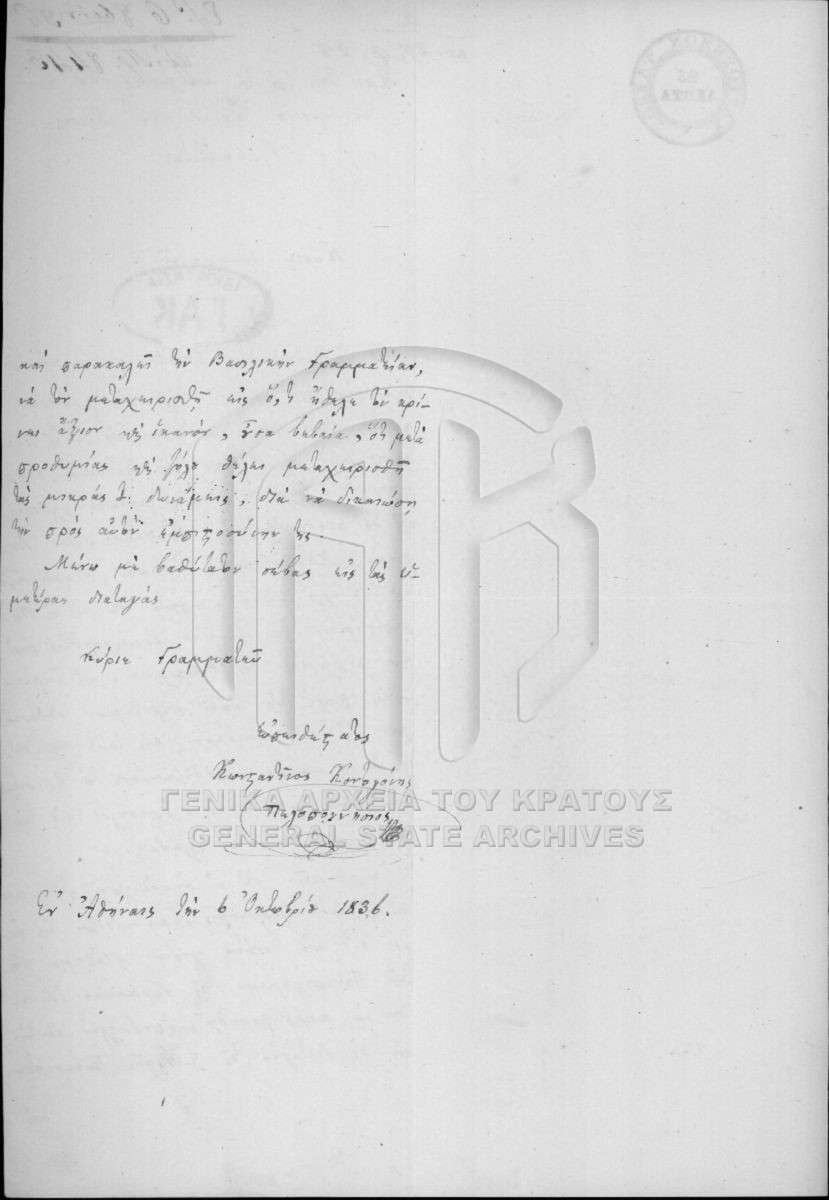 καὶ παρακαλεῖ τὴν Βασιλικὴν Γραμματείαν,
νὰ τὸν μεταχειρισθῇ εἰς ὅ,τι ἤθελε τὸν κρί-
νει ἄξιον καὶ ἱκανόν, οὖσα βεβαία, ὅτι μετὰ
προθυμίας καὶ ζήλου θέλει μεταχειρισθῆ
τὰς μικράς τ. δυνάμεις, διὰ νὰ δικαιώσῃ
τὴν πρὸς αὐτὸν ἐμπιστοσύνην της.
Μένω μὲ βαθύτατον σέβας εἰς τὰς ὑ-
μετέρας διαταγάς
Κύριε Γραμματεῦ
εὐπειθέστατος
Κωνσταντῖνος
Πελοποννήσιος
Ἐν Ἀθήναις τὴν 6 Ὀκτωβρίου 1836.
ΓΕΝΙΚΑ ΑΡΧΕΙΑ ΤΟΥ ΚΡΑΤΟΥΣ
GENERAL STATE ARCHIVES